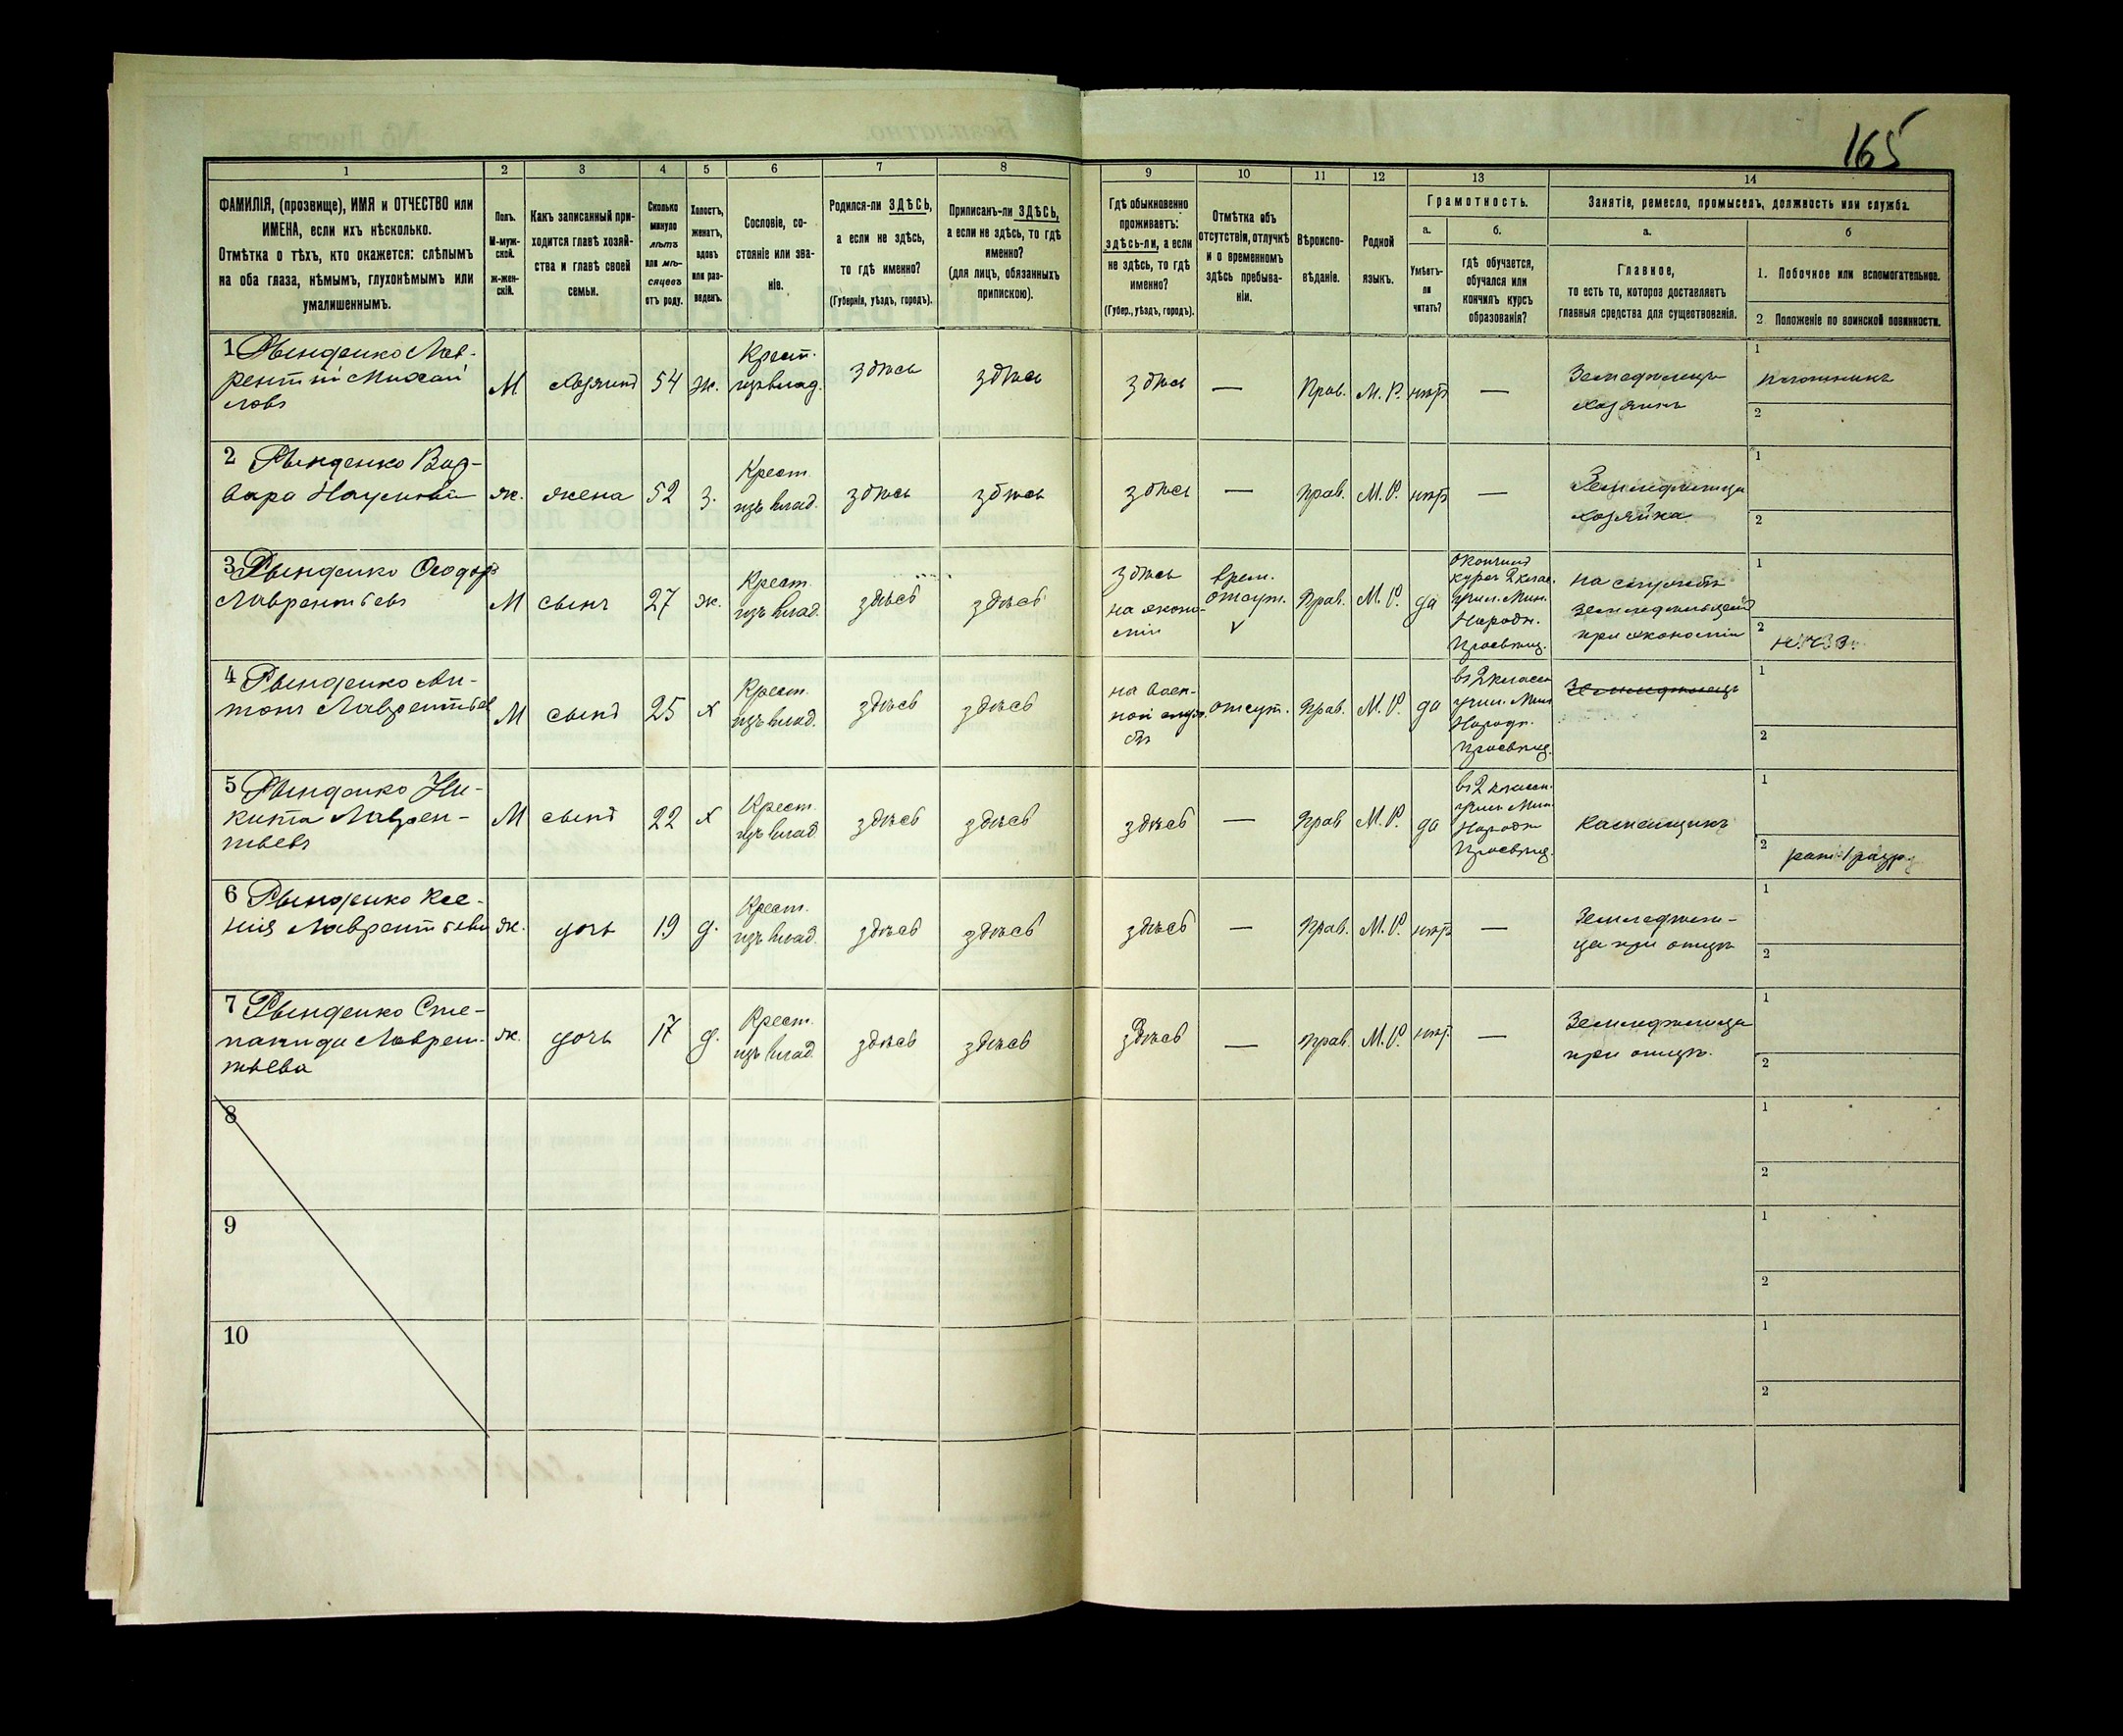 165
1
2
3
4
5
6
7
8
9
10
11
12
13
14
ФАМИЛІЯ, (прозвище), ИМЯ и ОТЧЕСТВО или
ИМЕНА, если ихъ нѣсколько.
Отмѣтка о тѣхъ, кто окажется: слѣпымъ
на оба глаза, нѣмымъ, глухонѣмымъ или
умалишеннымъ.
Полъ.
М-муж-
ской.
ж-жен-
скій.
Какъ записанный при-
ходится главѣ хозяй-
ства и главѣ своей
семьи.
Сколько
минуло
лѣтъ
или мѣ-
сяцевъ
отъ роду.
Холостъ,
женатъ,
вдовъ
или раз-
веденъ.
Сословіе, со-
стояніе или зва-
ніе.
Родился-ли ЗДѢСЬ,
а если не здѣсь,
то гдѣ именно?
(Губернія, уѣздъ, городъ).
Приписанъ-ли ЗДѢСЬ,
а если не здѣсь, то гдѣ
именно?
(для лицъ, обязанныхъ
припискою).
Гдѣ обыкновенно
проживаетъ:
здѣсь-ли, а если
не здѣсь, то гдѣ
именно?
(Губер., уѣздъ, городъ).
Отмѣтка объ
отсутствіи, отлучкѣ
и о временномъ
здѣсь пребыва-
ніи.
Вѣроиспо-
вѣданіе.
Родной
языкъ.
Грамотность.
а.
Умѣетъ-
ли
читать?
б.
гдѣ обучается,
обучался или
кончилъ курсъ
образованія?
Занятіе, ремесло, промыселъ, должность или служба.
а.
Главное,
то есть то, которое доставляетъ
главныя средства для существованія.
б
1. Побочное или вспомогательное.
2 Положеніе по воинской повинности.
1 Рынденко Лав-
рентій Михай
ловъ
М
хозяинъ
54
ж.
Крест.
изъ влад.
здѣсь
здѣсь
здѣсь
—
Прав.
М. Р.
нѣтъ
—
Земледѣлецъ
хозяинъ
1
плотникъ
2
2 Рынденко Вар-
вара Наумова
ж.
жена
52
з.
Крест.
изъ влад.
здѣсь
здѣсь
здѣсь
—
прав.
М. Р.
нѣтъ
—
Земледѣлица
хозяйка
1
2
3 Рынденко Ѳеодоръ
Лаврентьевъ
М
сынъ
27
ж.
Крест.
изъ влад.
здѣсь
здѣсь
здѣсь
на эконо-
міи
врем.
отсут.
Прав.
М. Р.
да
окончилъ
курсъ 2 клас.
учил. Мин.
Народн.
Просвѣщ.
на службѣ
при экономіи
1
2
4 Рынденко Ан-
тонъ Лаврентьев
М
сынъ
25
х
Крест.
изъ влад.
здѣсь
здѣсь
на воен-
ной служ-
бѣ
отсут.
Прав.
М. Р.
да
въ 2 классн
учил. Мин
Народн.
Просвѣщ.
Земледѣлецъ
1
2
5 Рынденко Ни-
кита Лаврен-
тьевъ
М
сынъ
22
х
Крест.
изъ влад
здѣсь
здѣсь
здѣсь
—
Прав
М. Р.
да
въ 2 классн.
учил. Мин.
Народн
Просвѣщ.
каменщикъ
1
2
рат. 1 разр.
6 Рынденко Ксе-
нія Лаврентьева
ж.
дочь
19
д.
Крест.
изъ влад.
здѣсь
здѣсь
здѣсь
—
Прав.
М. Р.
нѣтъ
—
Земледѣли-
ца при отцѣ
1
2
7 Рынденко Сте-
панида Лаврен-
тьева
ж.
дочь
17
д.
Крест.
изъ влад.
здѣсь
здѣсь
здѣсь
—
прав.
М. Р.
нѣт.
—
Земледѣлица
при отцѣ.
1
2
8
1
2
9
1
2
10
1
2